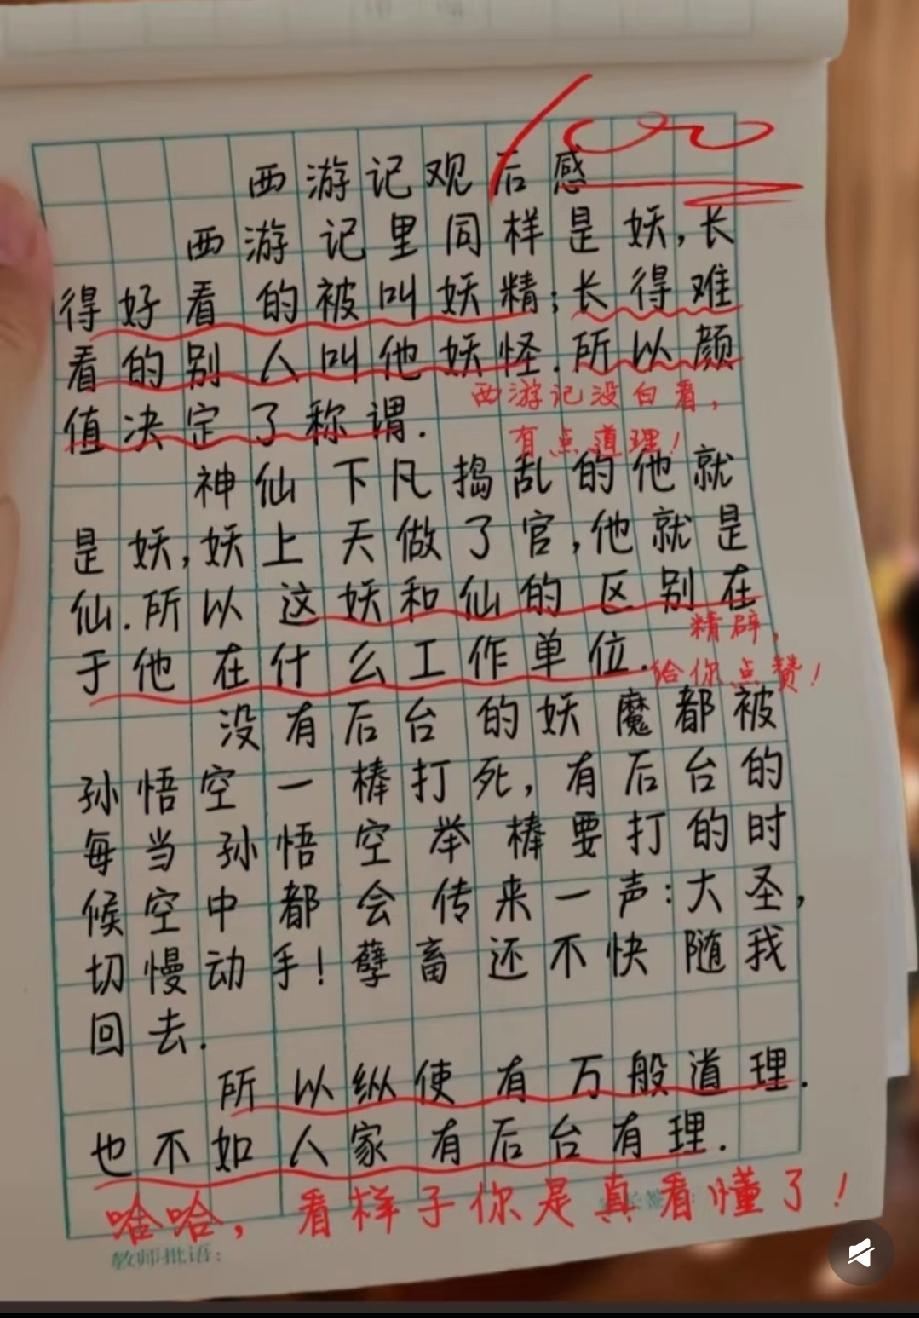 100
西游记观后感
西游记里同样是妖,长
得好看的被叫妖精;长得难
看的别人叫他妖怪.所以颜
西游记没白看,
值决定了称谓.
有点道理!
神仙下凡捣乱的他就
是妖,妖上天做了官,他就是
仙.所以这妖和仙的区别在
精辟,
于他在什么工作单位.
给你点赞!
没有后台的妖魔都被
孙悟空一棒打死,有后台的
每当孙悟空举棒要打的时
候空中都会传来一声:大圣,
切慢动手!孽畜还不快随我
回去.
所以纵使有万般道理.
也不如人家有后台有理.
哈哈,看样子你是真看懂了!
教师批语: